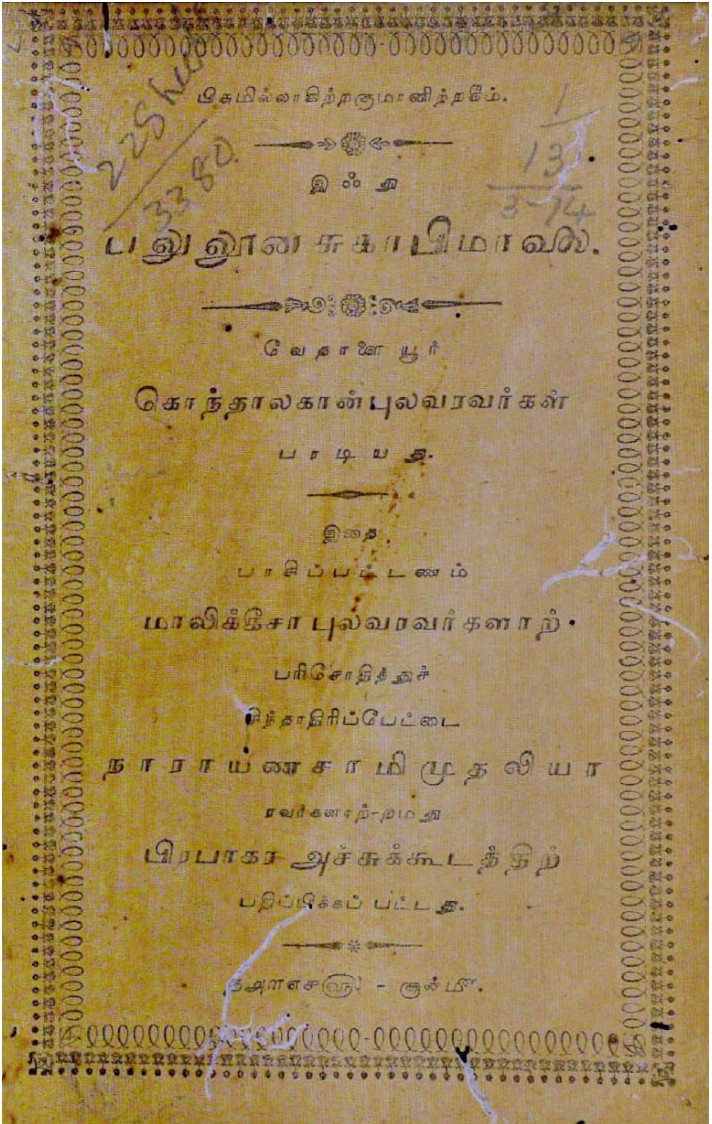 பிசுமில்லாகிற்றகுமானிற்றகீம்.
1
225 heet
3380
13
3-74
இஃது
வேதாளையூர்
கொந்தாலகான்புலவரவர்கள்
பாடியது.
இதை
பாசிப்பட்டணம்
மாலிக்கீசா புலவரவர்களாற்
பரிசோதித்துச்
சிந்தாதிரிப்பேட்டை
நாராயணசாமிமுதலியா
ரவர்களாற்-றமது
பிரபாகர அச்சுக்கூடத்திற்
பதிப்பிக்கப் பட்டது.